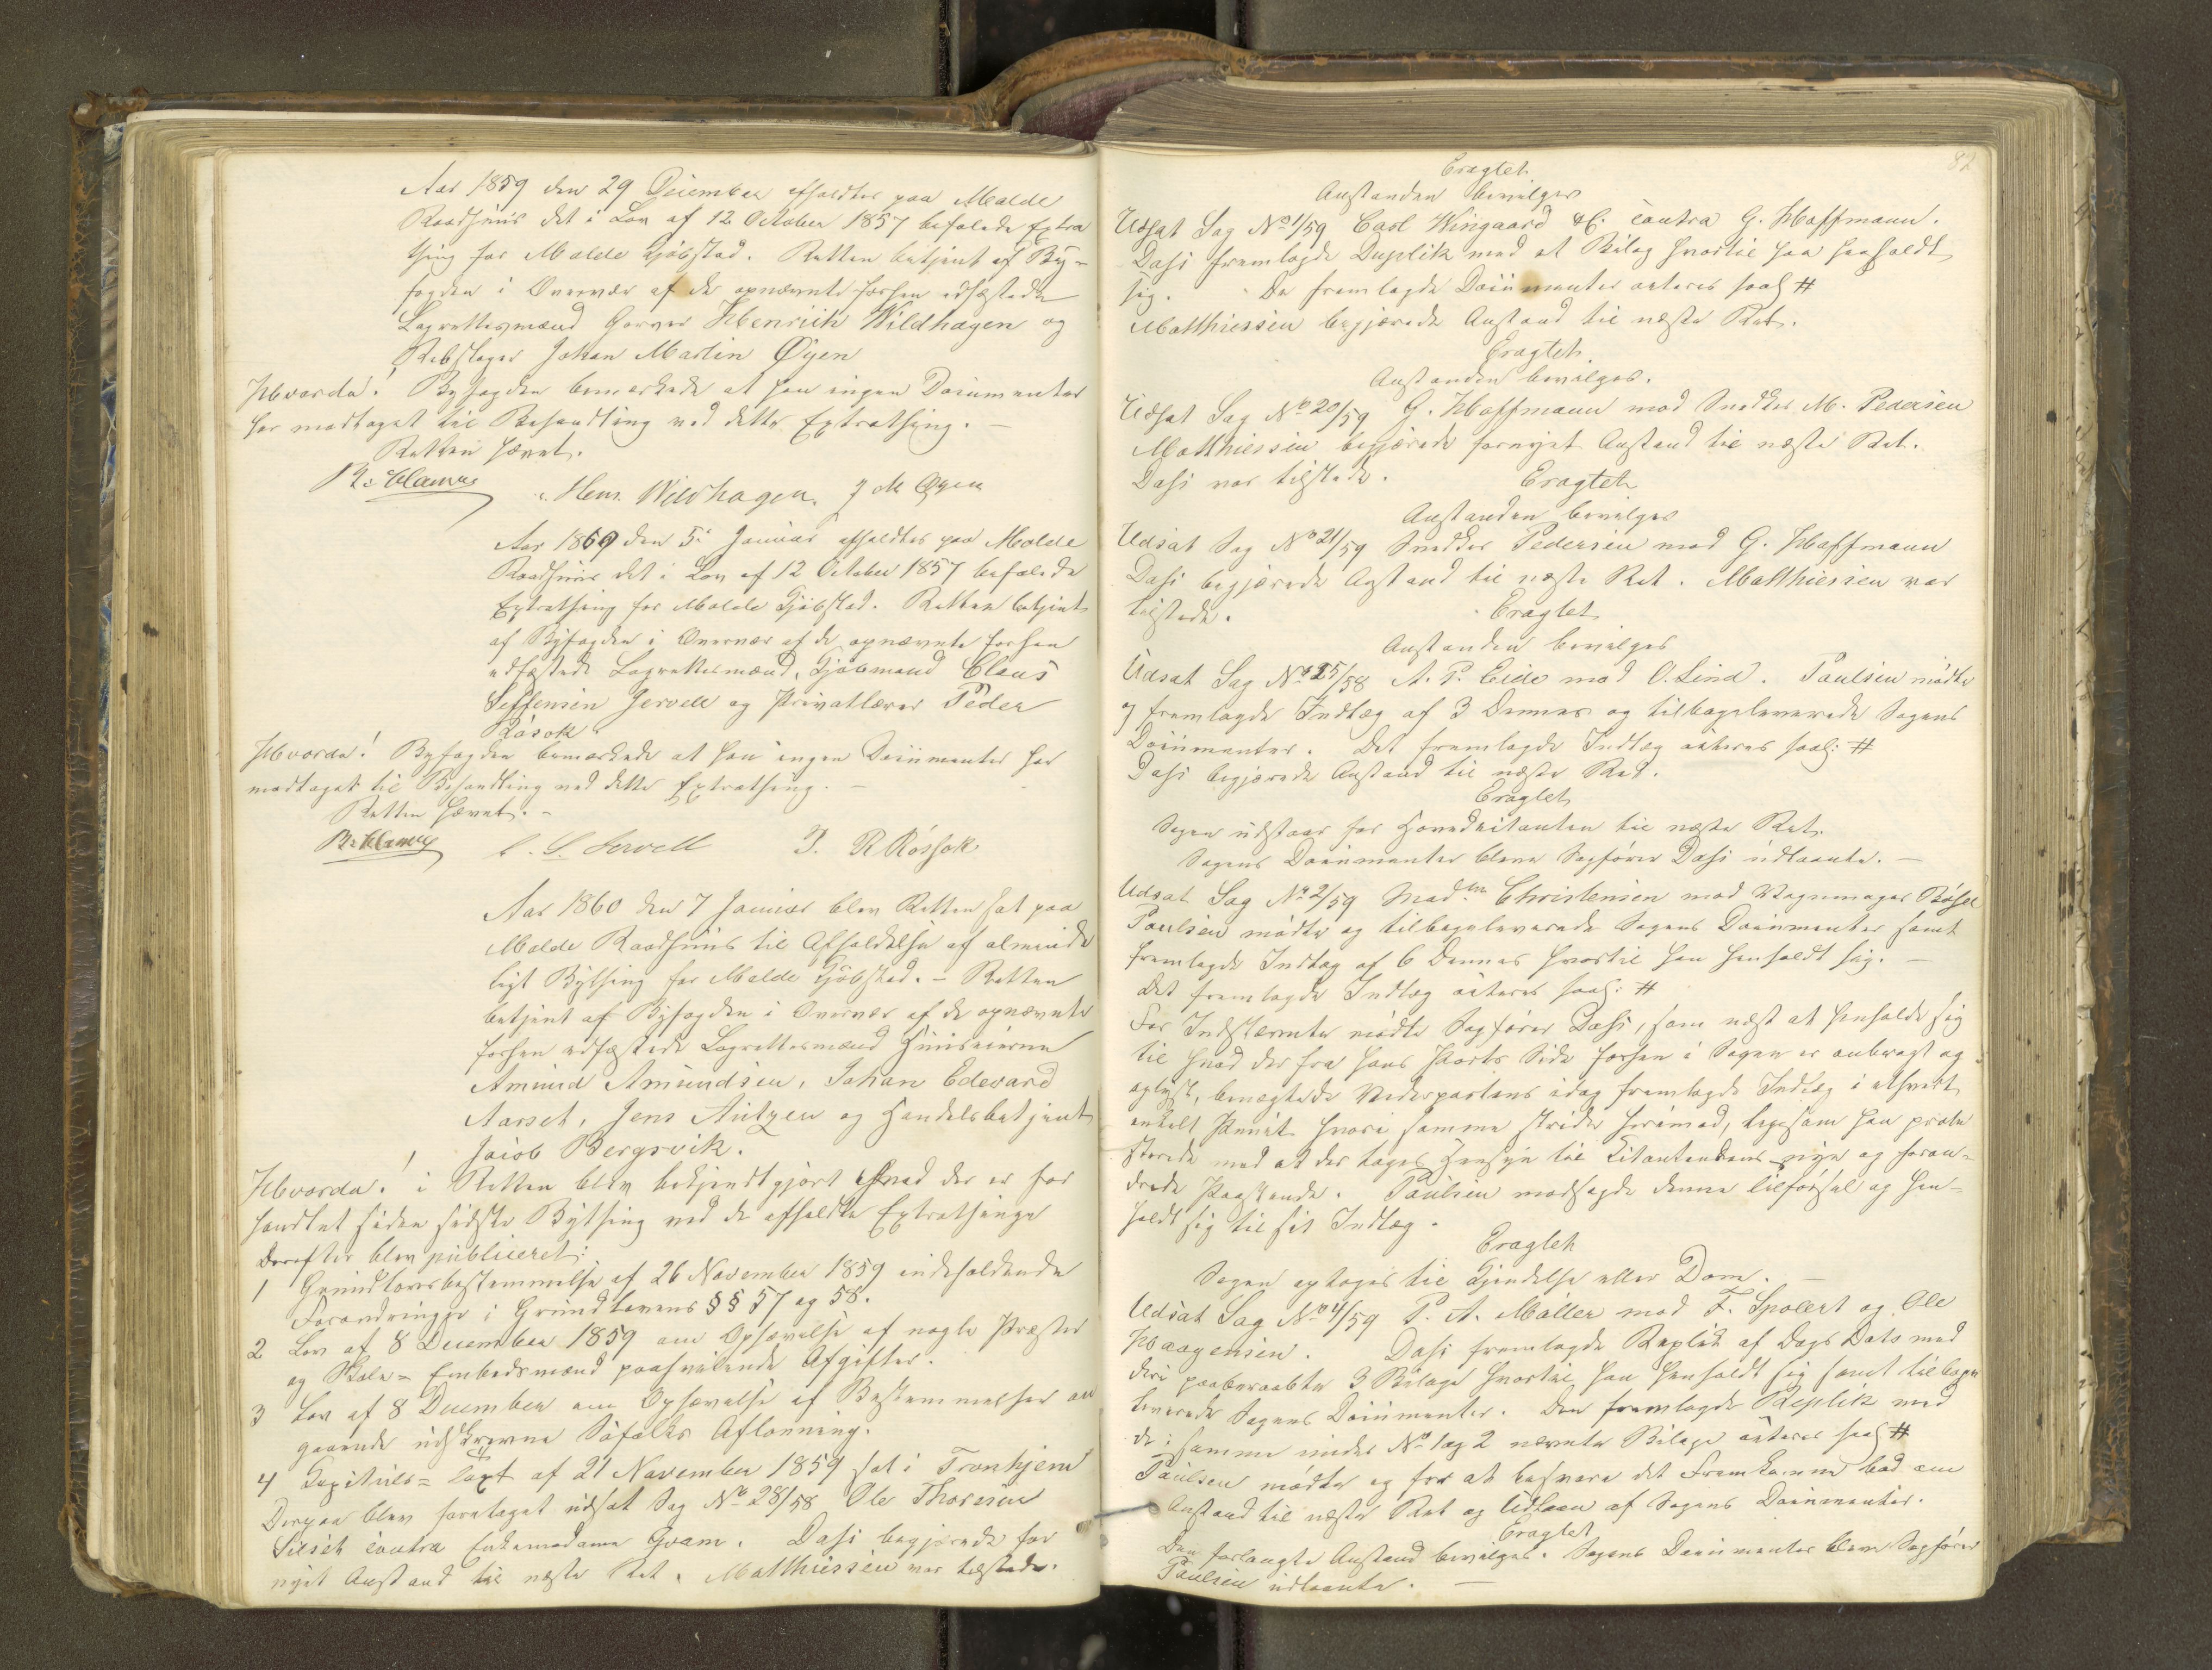 Aar 1859 den 29 December afholdtes paa Molde
Raadhuus det i Lov af 12 October 1857 befalede Extra
thing for Molde Kjøbstad. Retten betjent af By-
fogden i Overvær af de opnævnte forhen edfæstede
Lagrettesmænd Garver Henrich Wildhagen og
Rebslager Johan Martin Øyen
Hvorda! Byfogden bemærkede at han ingen Documenter
har modtaget til Behandling ved dette Extrathing. –
Retten hævet.
Hen. Wildhagen. J M Øyen
Aar 1860 den 5te Januar afholdtes paa Molde
Raadhuus det i Lov af 12 October 1857 befalede
Extrathing for Molde Kjøbstad. Retten betjent
af Byfogden i Overvær af de opnævnte forhen
edfæstede Lagrettesmænd, Kjøbmand Claus
Steffensen Jervell og Privatlærer Peder
Røsok
Hvorda! Byfogden bemærkede at han ingen Documenter har
modtaget til Behandling ved dette Extrathing. –
Retten hævet. –
C. S. Jervell P. R Røssok
Aar 1860 den 7 Januar blev Retten sat paa
Molde Raadhuus til Afholdelse af alminde
ligt Bything for Molde Kjøbstad. – Retten
betjent af Byfogden i Overvær af de opnævnte
forhen edfæstede Lagrettesmænd Huuseierne
Amund Amundsen, Johan Edevard
Aarset, Jens Autzen og Handelsbetjent
Jacob Bergsvik.
Hvorda! i Retten blev bekjendtgjort hvad der er for
handlet siden sidste Bything ved de afholdte Extrathinge
Derefter blev publiceret:
1 Grundlovsbestemmelse af 26 November 1859 indeholdende
Forandringer i Grundlovens §§ 57 og 58.
2 Lov af 8 December 1859 om Ophævelse af nogle Præster
og Skole-Embedsmænd paahvilende Afgifter.
3 Lov af 8 December om Ophævelse af Bestemmelser an
gaaende udskrevne Søfolks Aflønning.
4 Kapitels-Taxt af 21 November 1859 sat i Tronhjem
Derpaa blev foretaget udsat Sag No 28/58 Ole Thoresen
Silseth contra Enkemadame Gram. Dahi begjærede for
nyet Anstand til næste Ret. Matthiessen var tilstede.
82
Eragtet
Anstanden bevilges
Udsat Sag No 1/59 Carl Wingaard &C. contra G. Hoffmann.
Dahi fremlagde Duplik med et Bilag hvortil han henholdt
sig. De fremlagde Documenter acteres saal #
Matthiessen begjærede Anstand til næste Ret.
Eragtet
Anstanden bevilges.
Udsat Sag No 20/59 G. Hoffmann mod Snedker M. Pedersen
Matthiessen begjærede fornyet Anstand til næste Ret.
Dahi var tilstede. Eragtet
Anstanden bevilges
Udsat Sag No 21/59 Snedker Pedersen mod G. Hoffmann
Dahi begjærede Anstand til næste Ret. Matthiessen var
tilstede. Eragtet
Anstanden bevilges
Udsat Sag No 25/58 A. P. Eide mod O. Lind. Paulsen mødte
og fremlagde Indlæg af 3 Dennes og tilbageleverede Sagens
Documenter. Det fremlagde Indlæg acteres saal: #
Dahi begjærede Anstand til næste Ret.
Eragtet
Sagen udstaar for Hovedcitanten til næste Ret.
Sagens Documenter bleve Sagfører Dahi udlaante. –
Udsat Sag No 2/59 Madm Christensen mod Vognmager Bøhsel
Paulsen mødte og tilbageleverede Sagens Documenter samt
fremlagde Indlæg af 6 Dennes hvortil han henholdt sig. –
Det fremlagde Indlæg acteres saal: #
For Indstævnte mødte Sagfører Dahi, som næst at henholde sig
til hvad der fra hans Parts Side forhen i Sagen er anbragt og
oplyst, benægtede Modpartens idag fremlagde Indlæg i ethvert
enkelt Punct hvori samme strider herimod, ligesom han prote
sterede mod at der tages Hensyn til Citantindens nye og foran-
drede Paastande. Paulsen modsagde denne Tilførsel og hen-
holdt sig til sit Indlæg.
Eragtet
Sagen optages til Kjendelse eller Dom. –
Udsat Sag No 4/59 P. A. Møller mod F. Spolert og Ole
Haagensen. Dahi fremlagde Replik af Dags Dato med
deri paaberaabte 3 Bilage hvortil han henholdt sig samt tilbage
leverede Sagens Documenter. Den fremlagde Replik med
de i samme under No 1 og 2 nævnte Bilage acteres saal #
Paulsen mødte og for at besvare det Fremkomne bad om
Anstand til næste Ret og Udlaan af Sagens Documenter.
Eragtet
Den forlangte Anstand bevilges. Sagens Documenter bleve Sagfører
Paulsen udlaante. –